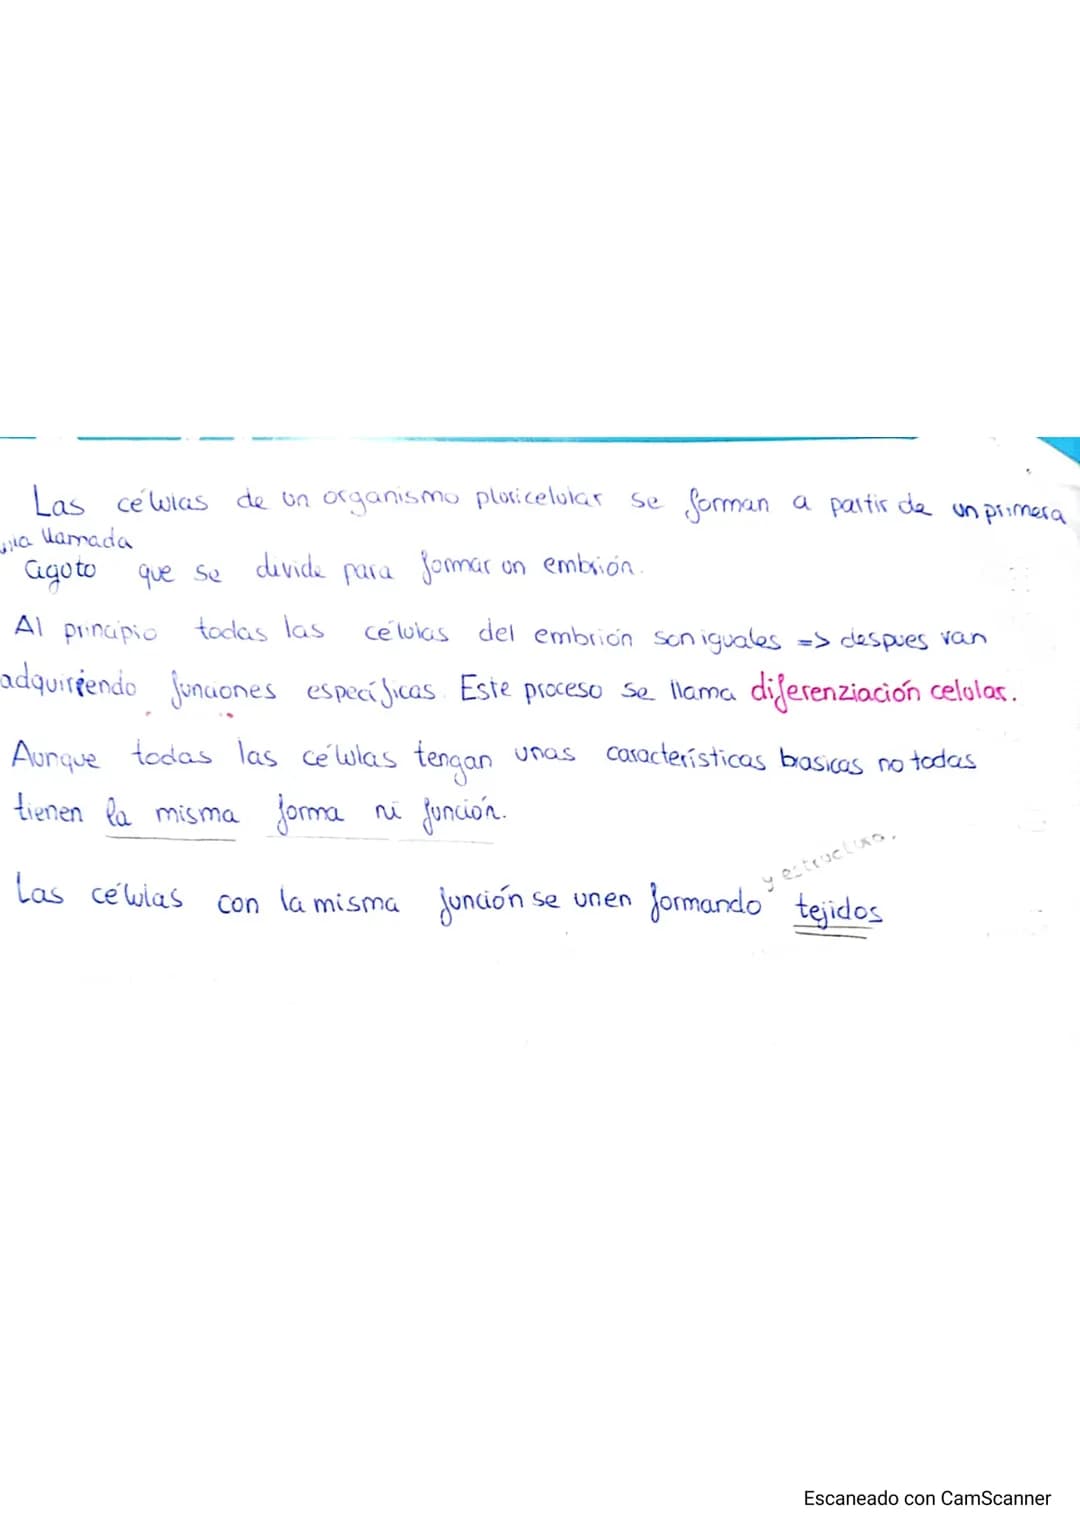 Las células de un organismo pluricelular se forman a partir de un primera
llamada
cigoto que se divide para formar un embrión.
Al principio todas las células del embrión son iguales => despues van
adquiriendo funciones específicas. Este proceso se llama diferenziación celular.
Aunque todas las células tengan unas características basicas no todas
tienen la misma forma ni función.
y estructura.
Las células con la misma función se unen formando tejidos
Escaneado con CamScanner